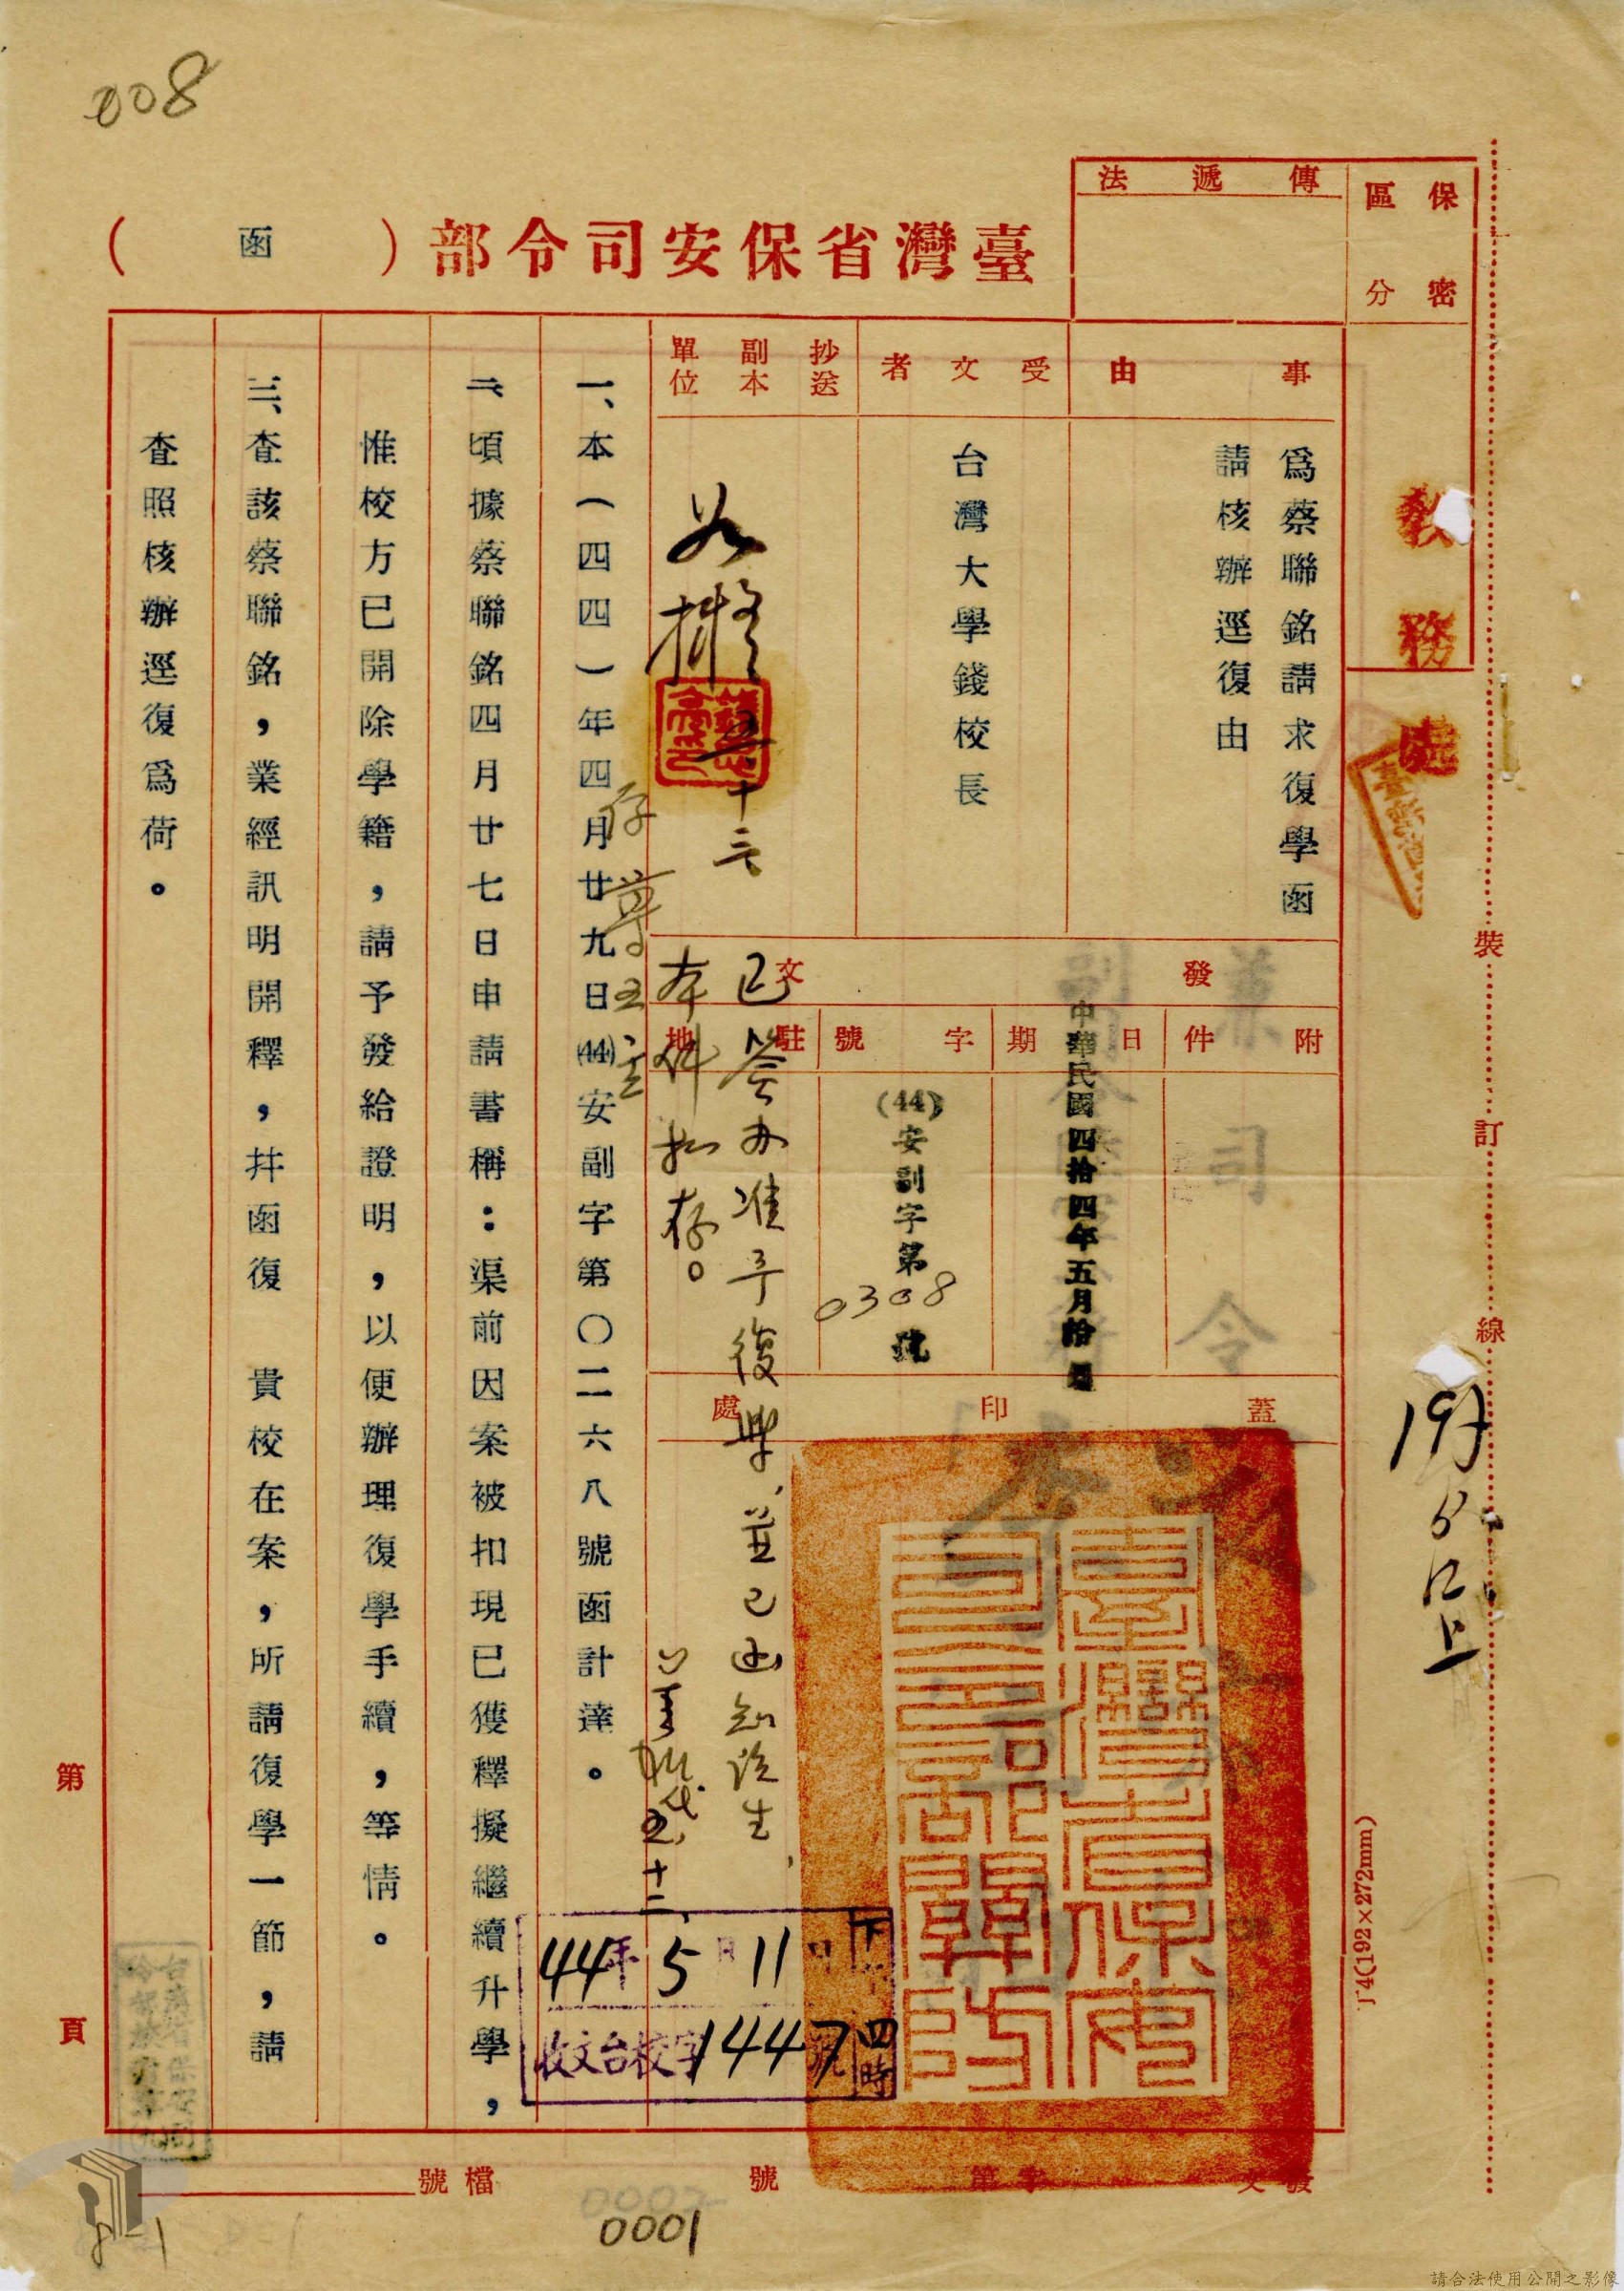 008
臺灣省保安司令部(函)
保密
區分
傳遞法
教務處
事由
為蔡聯銘請求復學函
請核辦逕復由
受文者
台灣大學錢校長
抄送
副本
單位
如擬
五十三
發文
附件
日期
中華民國四拾四年五月拾
字號
(44)安副字第0308號
駐地
已簽办准予復學,並已函知該生,
本件擬存。
五十二
蓋印處
一、本(四四)年四月廿九日(44)安副字第〇二六八號函計達。
二、頃據蔡聯銘四月廿七日申請書稱:渠前因案被扣現已獲釋擬繼續升學,
惟校方已開除學籍,請予發給證明,以便辦理復學手續,等情。
三、查該蔡聯銘,業經訊明開釋,并函復 貴校在案,所請復學一節,請
查照核辦逕復為荷。
44年5月11日下午四時
收文台校字1447號
臺灣省保安司令部關防
裝訂線
第頁
(192×272mm)
發文字第號
檔號
0002
0001
8-1
請合法使用公開之影像